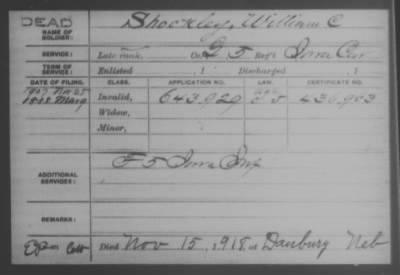 DEAD
NAME OF SOLDIER:
Shockley, William C
SERVICE: Late rank, Co. G 5 Reg't Iowa Cav
TERM OF SERVICE: Enlisted , 1 Discharged , 1
DATE OF FILING. CLASS. APPLICATION NO. LAW. CERTIFICATE NO.
1907 Nov 25
1888 May 9 Invalid, 643,929 436,903
Widow,
Minor,
F 5 Iowa Inf
ADDITIONAL SERVICES:
REMARKS:
Died Nov 15, 1918, at Danbury Neb